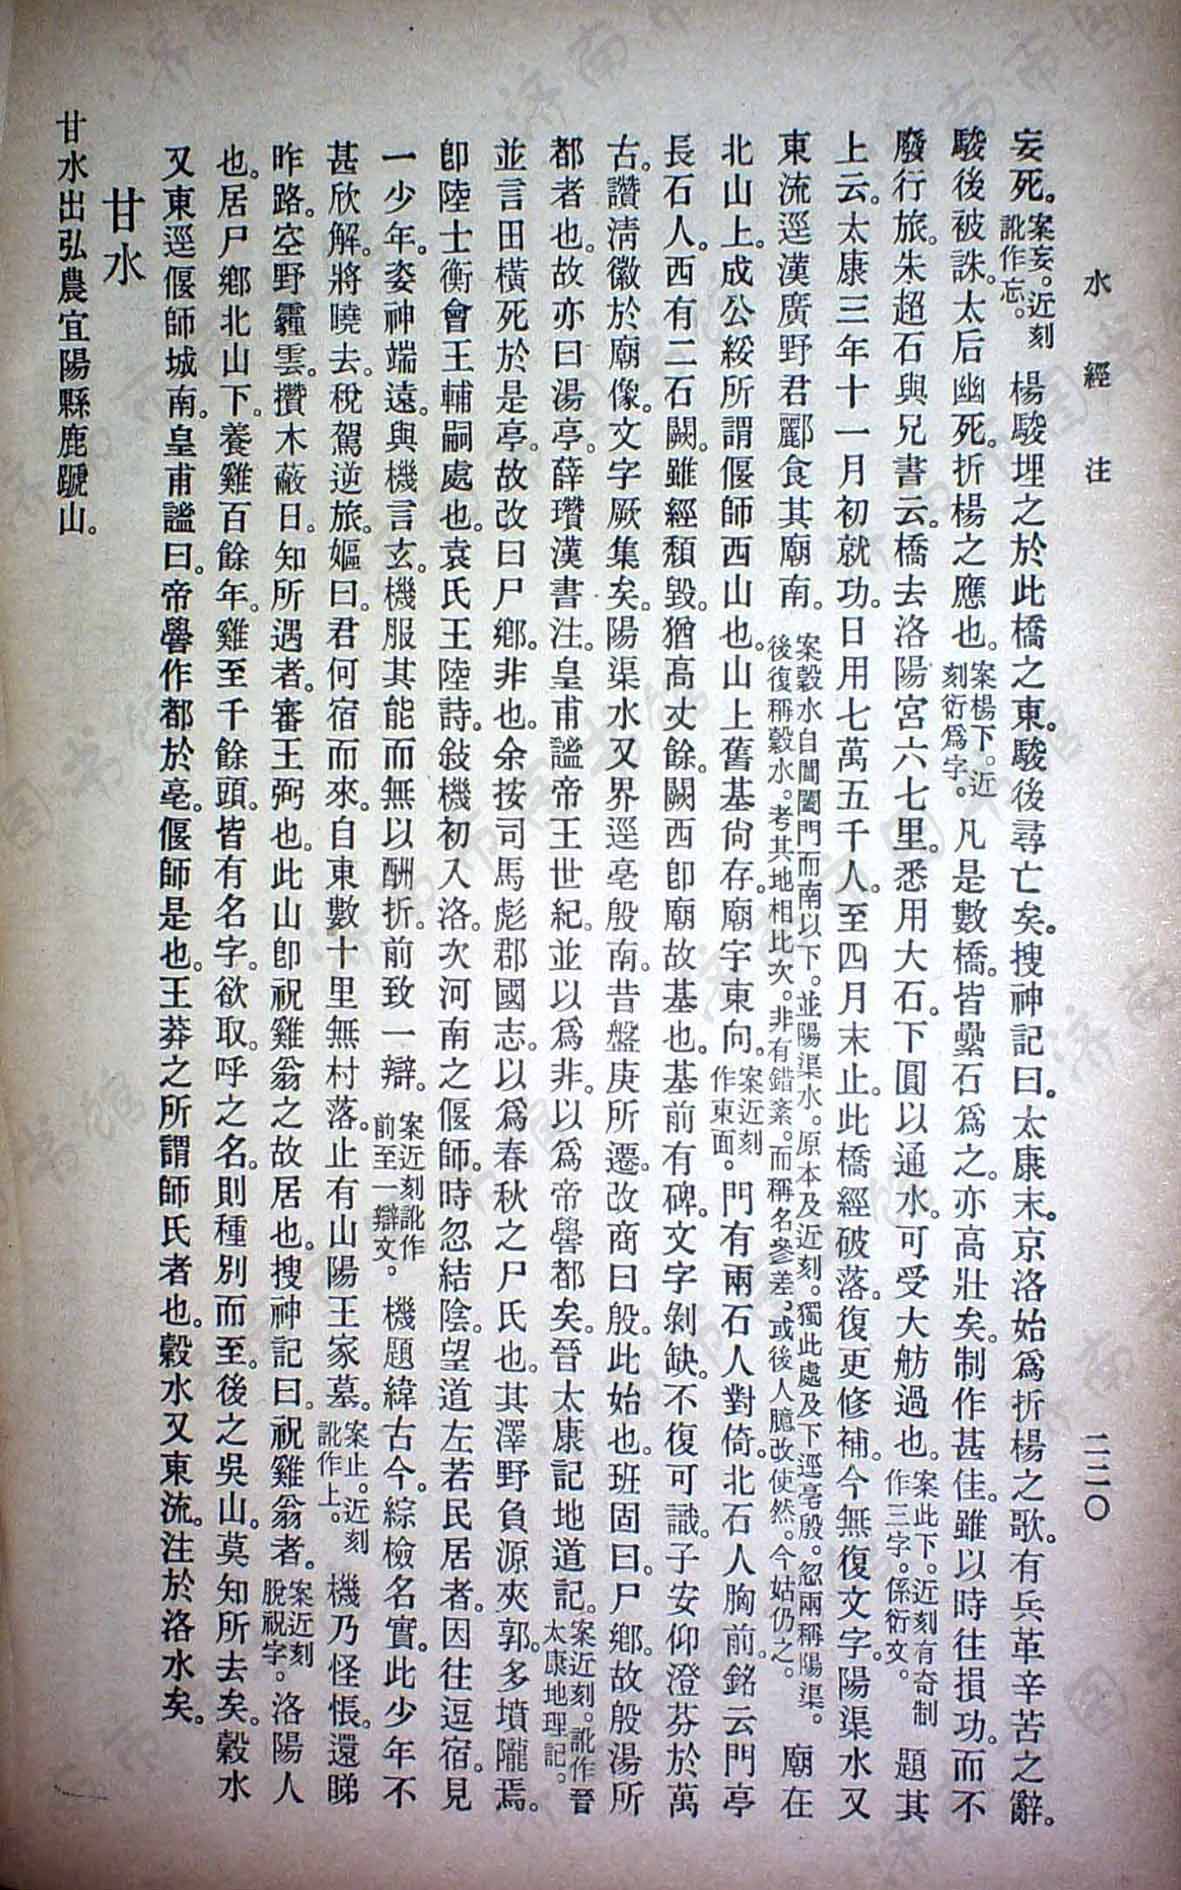 水經注
二二〇
妄死。案妄。近刻訛作忘。楊駿埋之於此橋之東。駿後尋亡矣。搜神記曰。太康末。京洛始爲折楊之歌。有兵革辛苦之辭。
駿後被誅。太后幽死。折楊之應也。案楊下。近刻衍爲字。凡是數橋。皆壘石爲之。亦高壯矣。制作甚佳。雖以時往損功。而不
廢行旅。朱超石與兄書云。橋去洛陽宮六七里。悉用大石。下圓以通水。可受大舫過也。案此下。近刻有奇制作三字。係衍文。題其
上云。太康三年十一月初就功。日用七萬五千人。至四月末止。此橋經破落。復更修補。今無復文字。陽渠水又
東流逕漢廣野君酈食其廟南。案穀水自閶闔門而南以下。並陽渠水。原本及近刻。獨此處及下逕亳殷。忽兩稱陽渠。後復稱穀水。考其地相比次。非有錯紊。而稱名參差，或後人臆改使然。今姑仍之。廟在
北山上。成公綏所謂偃師西山也。山上舊基尙存。廟宇東向。案近刻作東面。門有兩石人對倚。北石人胸前。銘云門亭
長石人。西有二石闕。雖經頹毀。猶高丈餘。闕西卽廟故基也。基前有碑。文字剝缺。不復可識。子安仰澄芬於萬
古。讚淸徽於廟像。文字厥集矣。陽渠水又界逕亳殷南。昔盤庚所遷。改商曰殷。此始也。班固曰。尸鄉。故殷湯所
都者也。故亦曰湯亭。薛瓚漢書注。皇甫謐帝王世紀。並以爲非。以爲帝嚳都矣。晉太康記地道記。案近刻。訛作晉太康地理記。
並言田橫死於是亭。故改曰尸鄉。非也。余按司馬彪郡國志。以爲春秋之尸氏也。其澤野負源夾郭。多墳隴焉。
卽陸士衡會王輔嗣處也。袁氏王陸詩。敍機初入洛。次河南之偃師。時忽結陰。望道左若民居者。因往逗宿。見
一少年。姿神端遠。與機言玄。機服其能而無以酬折。前致一辯。案近刻訛作前至一辯文。機題緯古今。綜檢名實。此少年不
甚欣解。將曉去。稅駕逆旅。嫗曰。君何宿而來。自東數十里無村落。止有山陽王家墓。案止。近刻訛作上。機乃怪悵。還睇
昨路。空野霾雲。攢木蔽日。知所遇者。審王弼也。此山卽祝雞翁之故居也。搜神記曰。祝雞翁者。案近刻脫祝字。洛陽人
也。居尸鄉北山下。養雞百餘年。雞至千餘頭。皆有名字。欲取。呼之名。則種別而至。後之吳山。莫知所去矣。穀水
又東逕偃師城南。皇甫謐曰。帝嚳作都於亳。偃師是也。王莽之所謂師氏者也。穀水又東流。注於洛水矣。
甘水
甘水出弘農宜陽縣鹿蹏山。